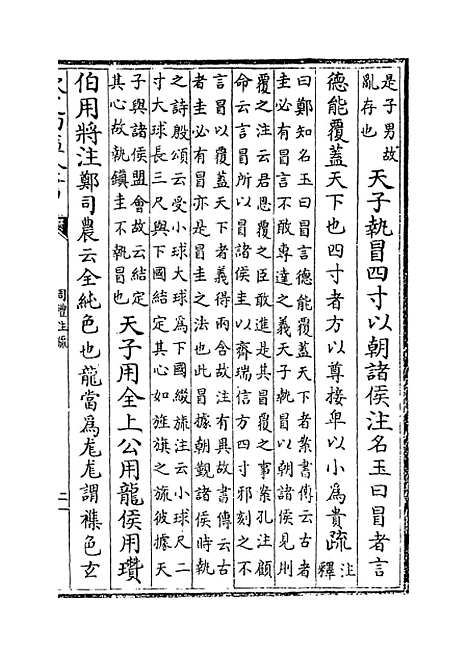 是子男故
亂存也
天子執冒四寸以朝諸侯注名玉曰冒者言
德能覆蓋天下也四寸者方以尊接卑以小為貴疏
注
釋
曰鄭知名玉曰冒言德能覆蓋天下者案書傳云古者
圭必有冒言不敢專達之義天子執冒以朝諸侯見則
覆之注云君恩覆之臣敢進是其冒覆之事案孔注顧
命云言冒所以冒諸侯圭以齊瑞信方四寸邪刻之不
言冒以覆蓋天下者義得兩含故注有異故書傳云古
者圭必有冒亦是冒圭之法也此冒據朝覲諸侯時執
之詩殷頌云受小球大球為下國綴旒注云小球尺二
寸大球長三尺與下國結定其心如旌旗之旒彼據天
子與諸侯盟會故云結定
其心故執鎮圭不執冒也
天子用全上公用龍侯用瓚
伯用將注鄭司農云全純色也龍當為尨尨謂襍色玄
周禮注疏